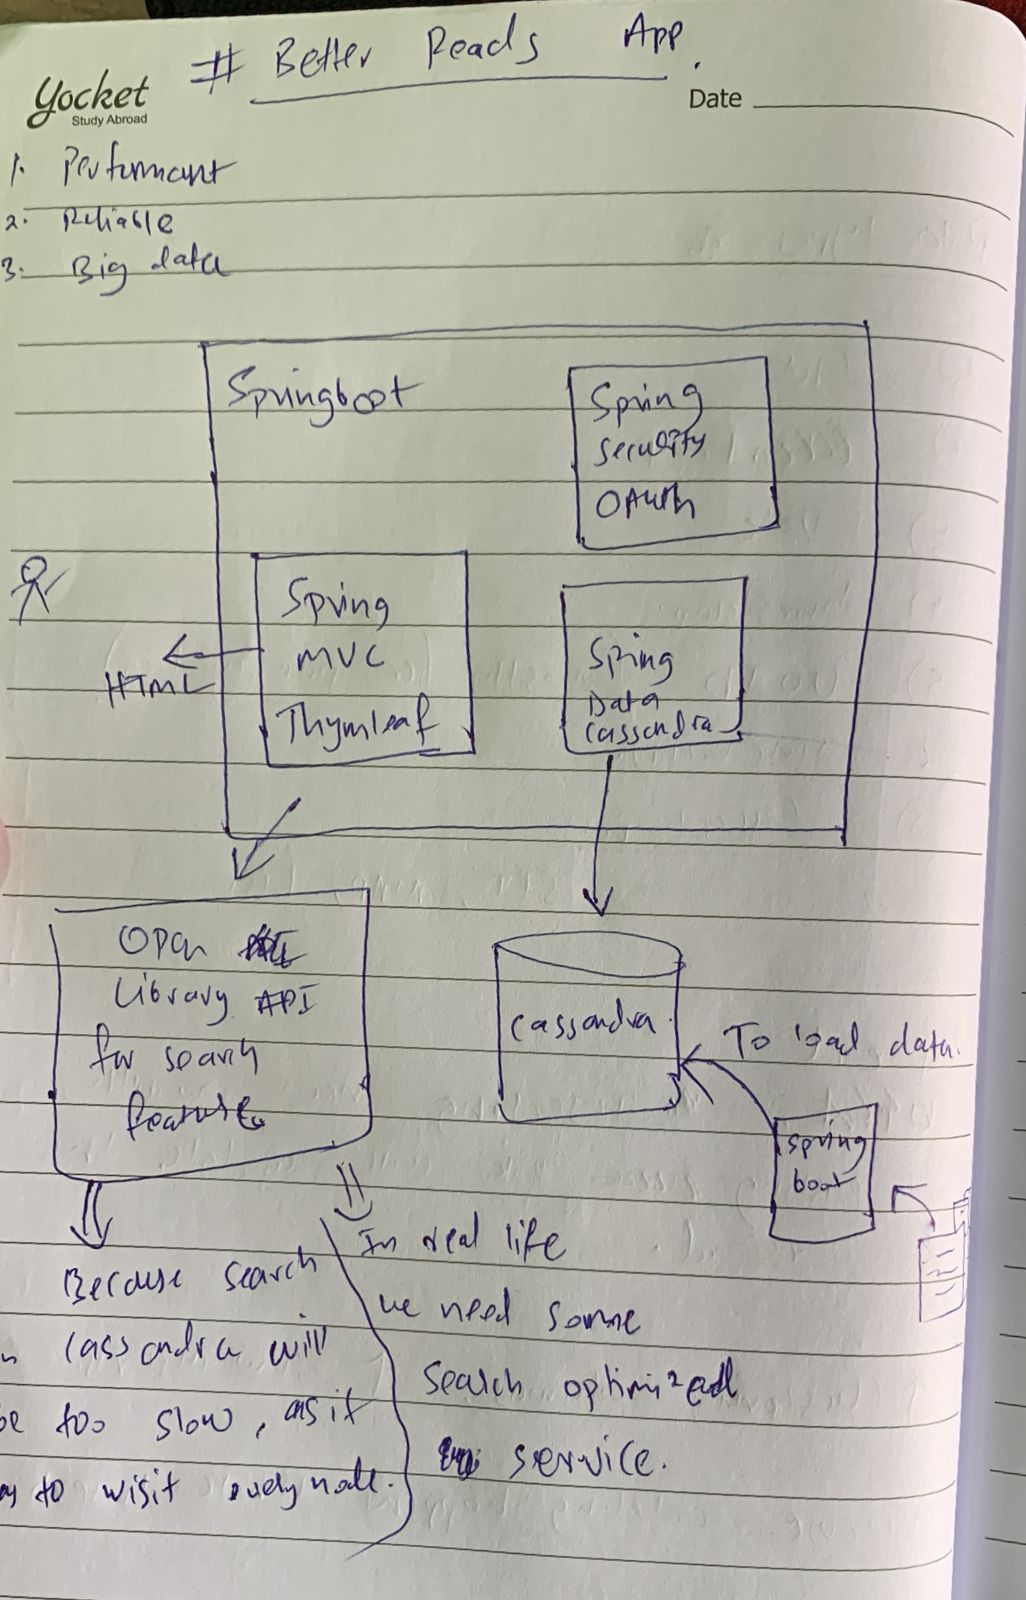 # Better Reads App.
yocket
Study Abroad
Date
1. Performant
2. Reliable
3. Big data
Springboot
Spring
security
OAuth
Spring
MVC
Thymleaf
HTML
Spring
Data
Cassandra
Open
Library API
for search
feature
Cassandra.
To load data.
Spring
boot
Because search
Cassandra will
too slow, as it
to wisit every node.
In real life
we need some
search optimized
service.